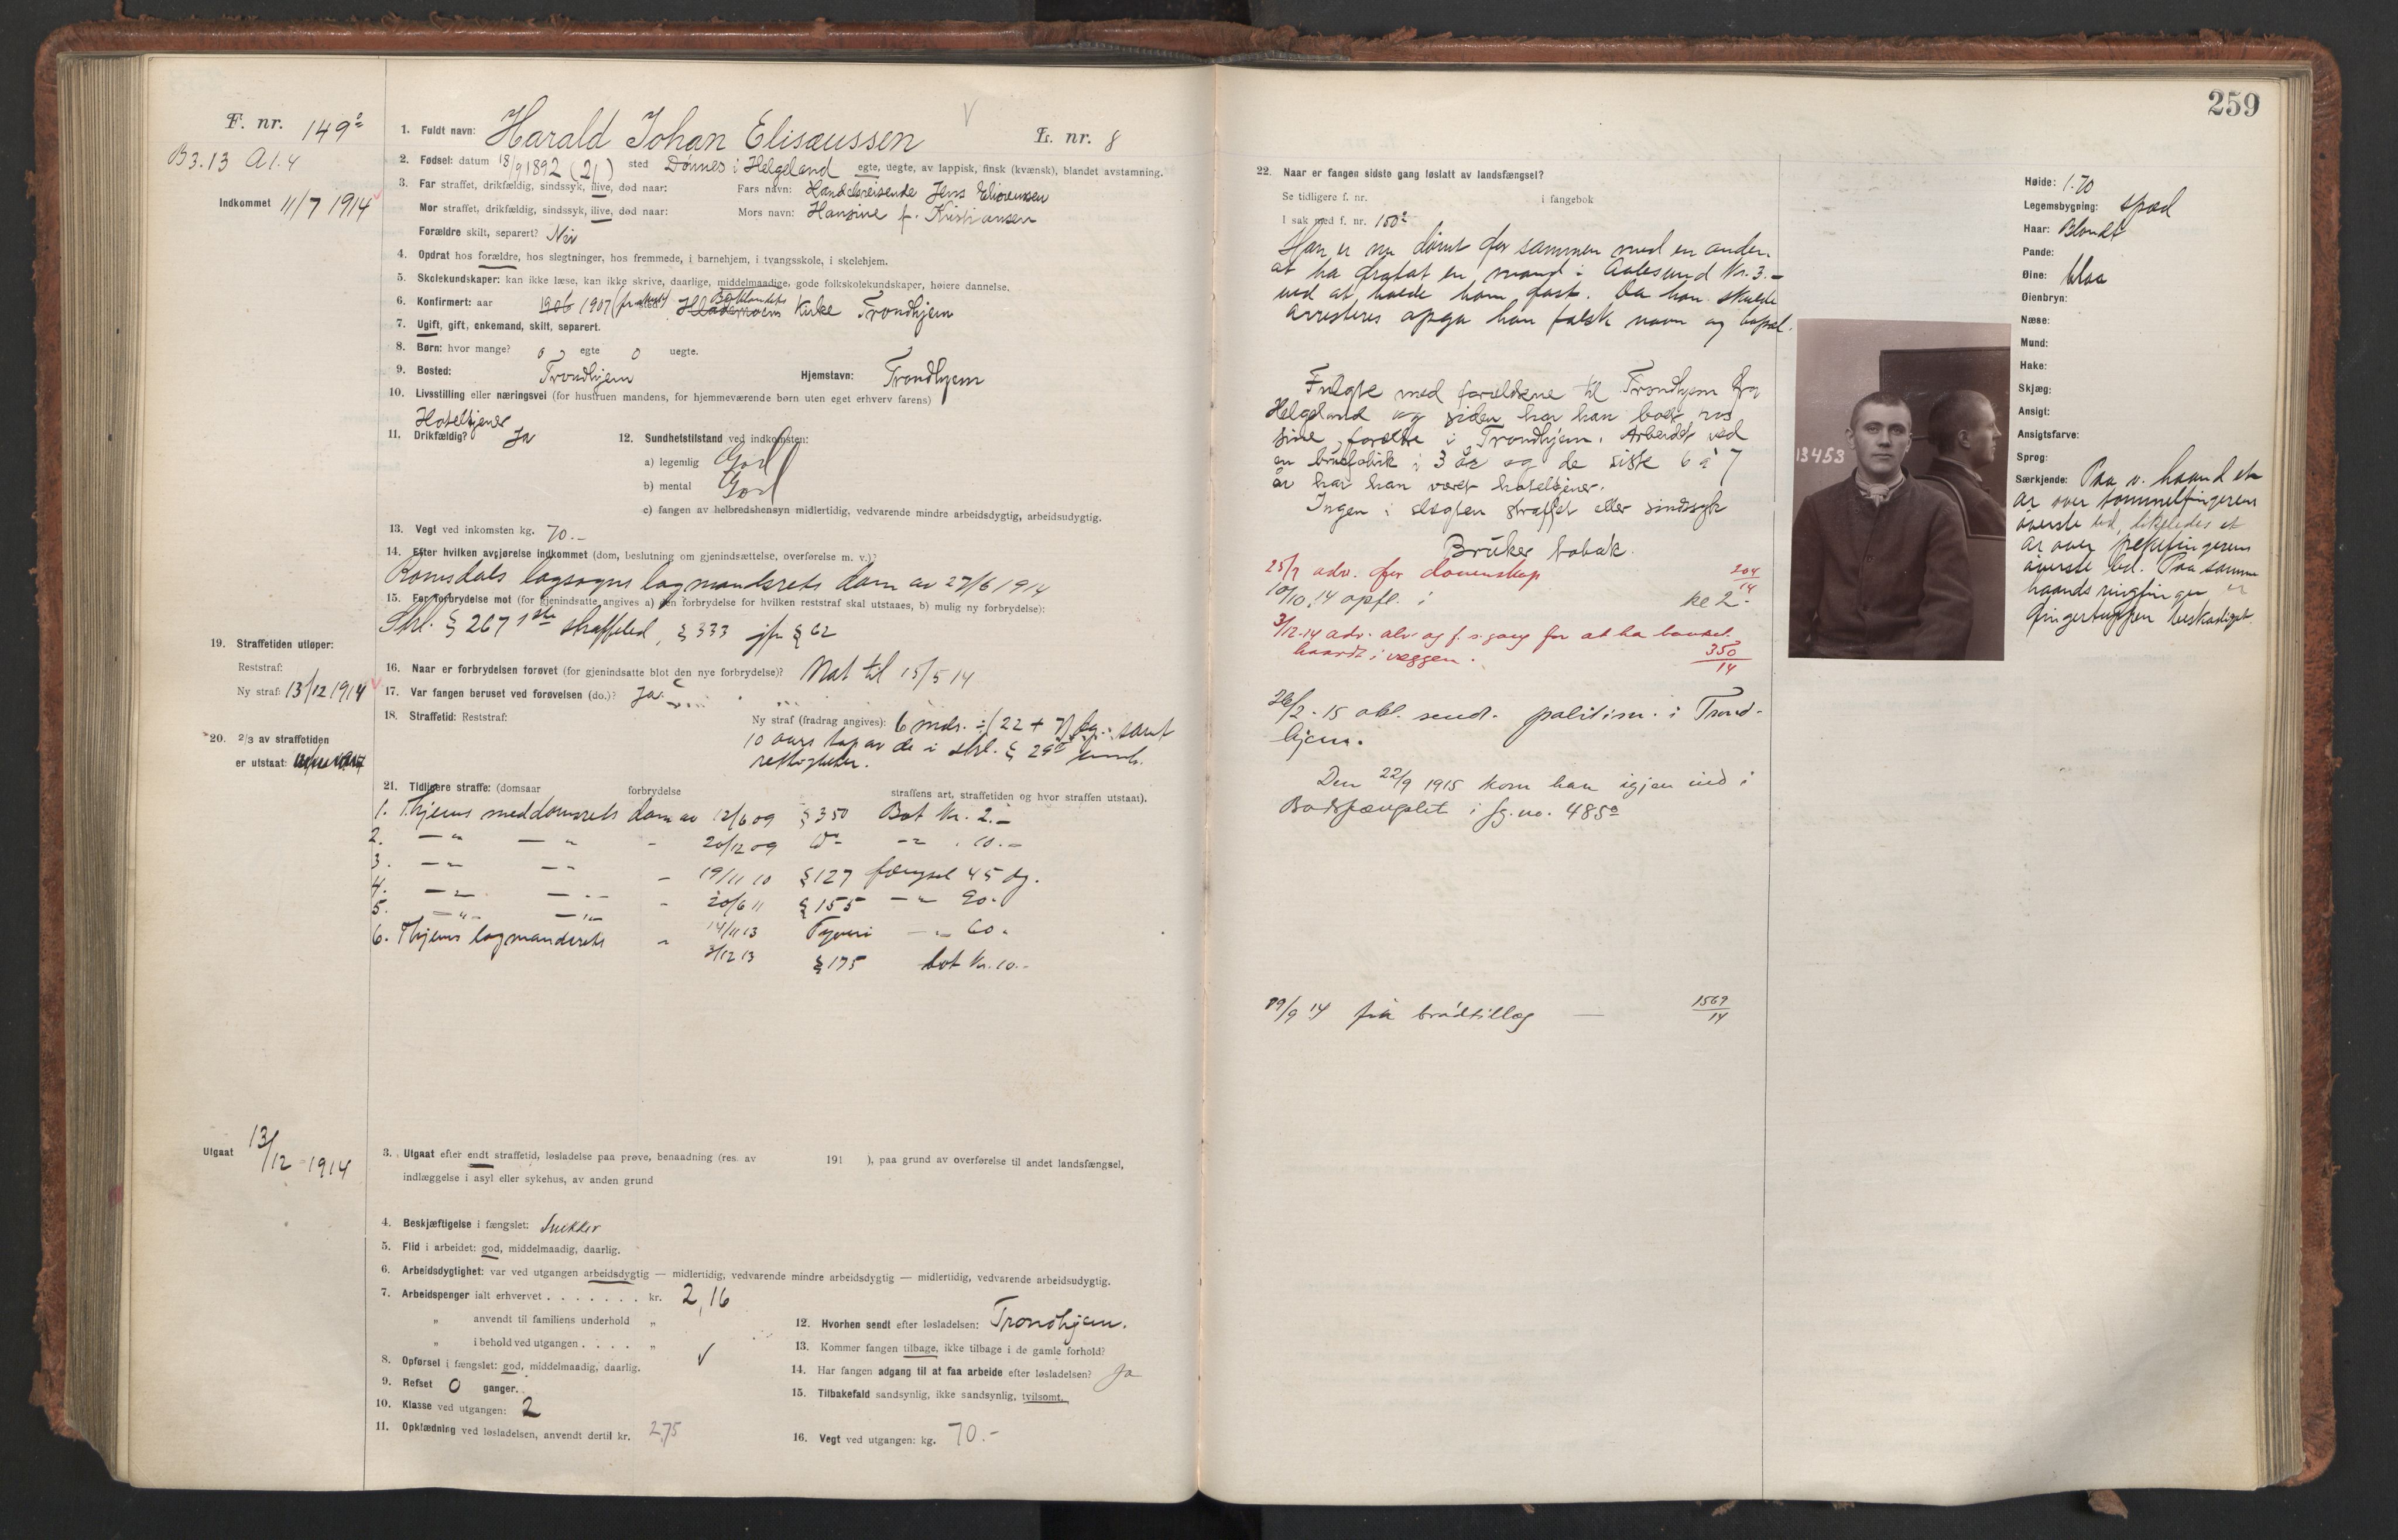 F. nr. 149²
B 3.13 A 1.4
Indkommet 11/7 1914
1. Fuldt navn: Harald Johan Elisæussen
L. nr. 8
2. Fødsel: datum 18/9 1892 (21) sted Dønnes i Helgeland egte, uegte, av lappisk, finsk (kvænsk), blandet avstamning.
3. Far straffet, drikfældig, sindssyk, ilive, død naar: Fars navn: Handelsreisende Jens Elisæussen
Mor straffet, drikfældig, sindssyk, ilive, død naar: Mors navn: Hansine f. Kristiansen
Forældre skilt, separert? Nei
4. Opdrat hos forældre, hos slegtninger, hos fremmede, i barnehjem, i tvangsskole, i skolehjem.
5. Skolekundskaper: kan ikke læse, kan ikke skrive, daarlige, middelmaadige, gode folkskolekundskaper, høiere dannelse.
6. Konfirmert: aar 1906 1907 Baklandets Kirke Trondhjem
7. Ugift, gift, enkemand, skilt, separert.
8. Børn: hvor mange? 0 egte 0 uegte.
9. Bosted: Trondhjem Hjemstavn: Trondhjem
10. Livsstilling eller næringsvei (for hustruen mandens, for hjemmeværende børn uten eget erhverv farens)
Hoteltjener
11. Drikfældig? Ja 12. Sundhetstilstand ved indkomsten:
a) legemlig God
b) mental God
c) fangen av helbredshensyn midlertidig, vedvarende mindre arbeidsdygtig, arbeidsudygtig.
13. Vegt ved inkomsten kg. 70.-
14. Efter hvilken avgjørelse indkommet (dom, beslutning om gjenindsættelse, overførelse m. v.)?
Romsdals lagsogns lagmandsrets dom av 27/6 1914
15. For forbrydelse mot (for gjenindsatte angives a) den forbrydelse for hvilken reststraf skal utstaaes, b) mulig ny forbrydelse):
Strl. § 267 1ste straffeled, § 333 jfr § 62
16. Naar er forbrydelsen forøvet (for gjenindsatte blot den nye forbrydelse)? Nat til 15/5 14
17. Var fangen beruset ved forøvelsen (do.)? Ja
18. Straffetid: Reststraf: Ny straf (fradrag angives): 6 mdr. ÷ (22 + 7) dg. samt
10 aars tap av de i strl. § 29 nævnte
rettigheter.
19. Straffetiden utløper:
Reststraf:
Ny straf: 13/12 1914
20. 2/3 av straffetiden
er utstaat:
21. Tidligere straffe: (domsaar forbrydelse straffens art, straffetiden og hvor straffen utstaat).
1. Thjems meddomsrets dom av 12/6 09 § 350 Bot kr. 2.-
2. — " — " - 20/12 09 do — " 10.-
3. — " — " - 19/11 10 § 127 fængsel 45 dg.
4. — " — " - 20/6 11 § 155 — " 90 -
5. — " — " 14/11 13 Tyveri — " 60 -
6. Thjems lagmandsrets - 3/12 13 § 175 bot kr. 10.-
Utgaat 13/12 1914
3. Utgaat efter endt straffetid, løsladelse paa prøve, benaadning (res. av 191 ), paa grund av overførelse til andet landsfængsel,
indlæggelse i asyl eller sykehus, av anden grund
4. Beskjæftigelse i fængslet: Snekker
5. Flid i arbeidet: god, middelmaadig, daarlig.
6. Arbeidsdygtighet: var ved utgangen arbeidsdygtig — midlertidig, vedvarende mindre arbeidsdygtig — midlertidig, vedvarende arbeidsudygtig.
7. Arbeidspenger ialt erhvervet . . . . . . . kr. 2,16
" anvendt til familiens underhold "
" i behold ved utgangen . . . . "
8. Opførsel i fængslet: god, middelmaadig, daarlig.
9. Refset 0 ganger.
10. Klasse ved utgangen: 2
11. Opklædning ved løsladelsen, anvendt dertil kr. 2,75
12. Hvorhen sendt efter løsladelsen: Trondhjem.
13. Kommer fangen tilbage, ikke tilbage i de gamle forhold?
14. Har fangen adgang til at faa arbeide efter løsladelsen? Ja
15. Tilbakefald sandsynlig, ikke sandsynlig, tvilsomt.
16. Vegt ved utgangen: kg. 70.-
259
22. Naar er fangen sidste gang løslatt av landsfængsel?
Se tidligere f. nr. i fangebok
I sak med f. nr. 150²
Han er nu dømt for sammen med en anden
at ha fratat en mand i Aalesund kr. 3.-
ved at holde ham fast. Da han skulde
arresteres opga han falsk navn og bopæl.
Fulgte med forældrene til Trondhjem fra
Helgeland og siden har han boet hos
sine forældre i Trondhjem. Arbeidet ved
en brusfabrik i 3 år og de siste 6 à 7
år har han været hoteltjener.
Ingen i slegten straffet eller sindssyk
Bruker tobak.
25/9 adv. for dovenskap 204/14
10/10.14 opfl. i kl 2.-
3/12.14 adv. alv. og f. s. gang for at ha banket
haardt i væggen. 350/14
26/2.-15 opl. sendt politim. i Trond-
hjem.
Den 22/9 1915 kom han igjen ind i
Bodsfængslet i fg. no. 485²
19/9 14 får brødtillæg — 1569/14
Høide: 1.70
Legemsbygning: spæd
Haar: Blondt
Pande:
Øine: blaa
Øienbryn:
Næse:
Mund:
Hake:
Skjæg:
Ansigt:
Ansigtsfarve:
Sprog:
Særkjende: Paa v. haand et
ar over tommelfingerens
øverste led, likeledes et
ar over pekefingerens
øverste led. Paa samme
haands ringfinger er
fingertuppen beskadiget.
13453